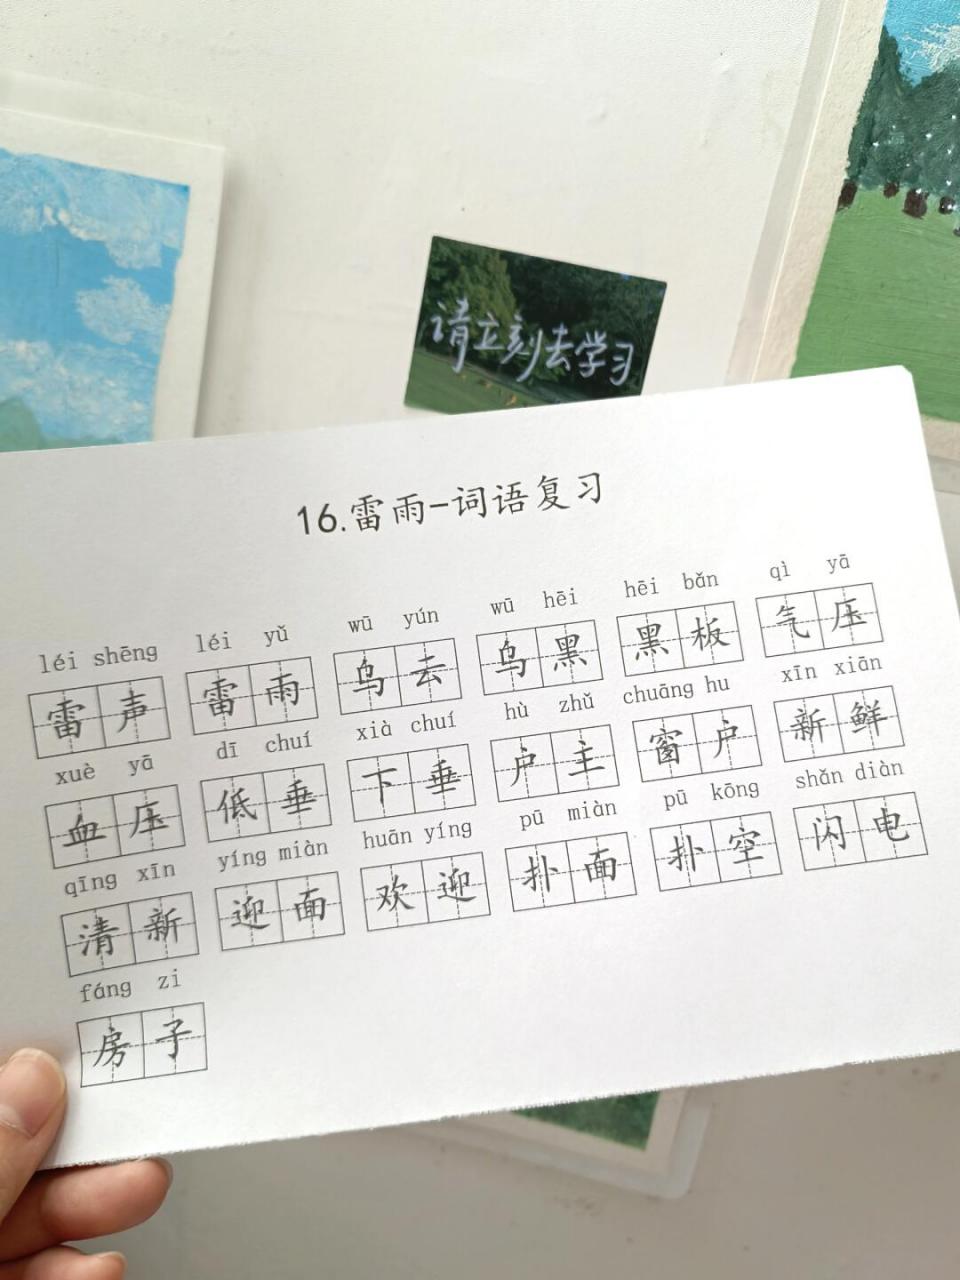 请立刻去学习
16.雷雨-词语复习
léi shēng léi yǔ wū yún wū hēi hēi bǎn qì yā
雷声 雷雨 乌云 乌黑 黑板 气压
xuè yā dī chuí xià chuí hù zhǔ chuāng hu xīn xiān
血压 低垂 下垂 户主 窗户 新鲜
qīng xīn yíng miàn huān yíng pū miàn pū kōng shǎn diàn
清新 迎面 欢迎 扑面 扑空 闪电
fáng zi
房子